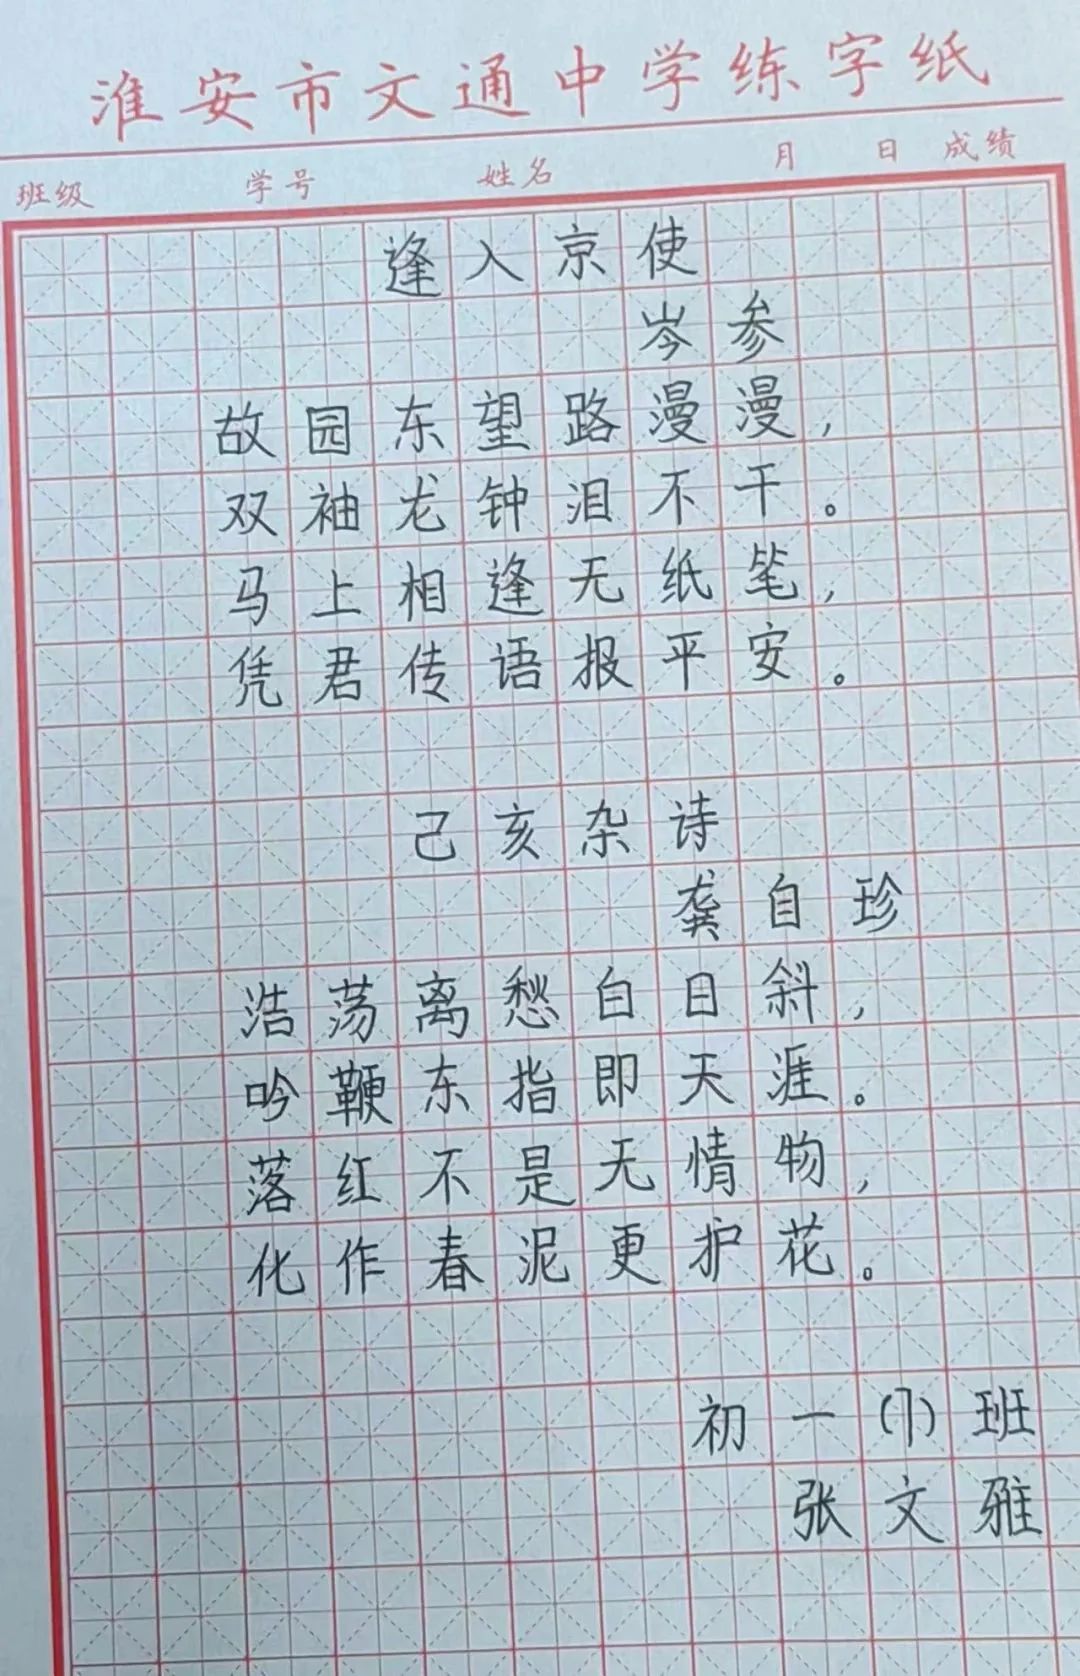 淮安市文通中学练字纸
班级 学号 姓名 月 日 成绩
逢入京使
岑参
故园东望路漫漫，
双袖龙钟泪不干。
马上相逢无纸笔，
凭君传语报平安。
己亥杂诗
龚自珍
浩荡离愁白日斜，
吟鞭东指即天涯。
落红不是无情物，
化作春泥更护花。
初一(7)班
张文雅